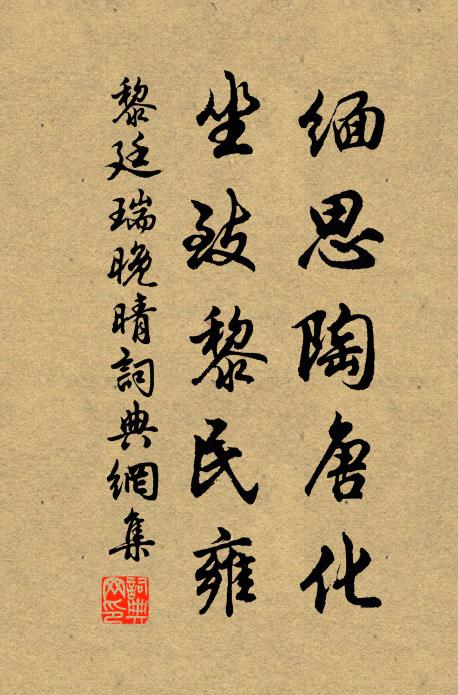 緬思陶唐化
坐致黎民雍
黎廷瑞晚晴詞典網集
詞典網印